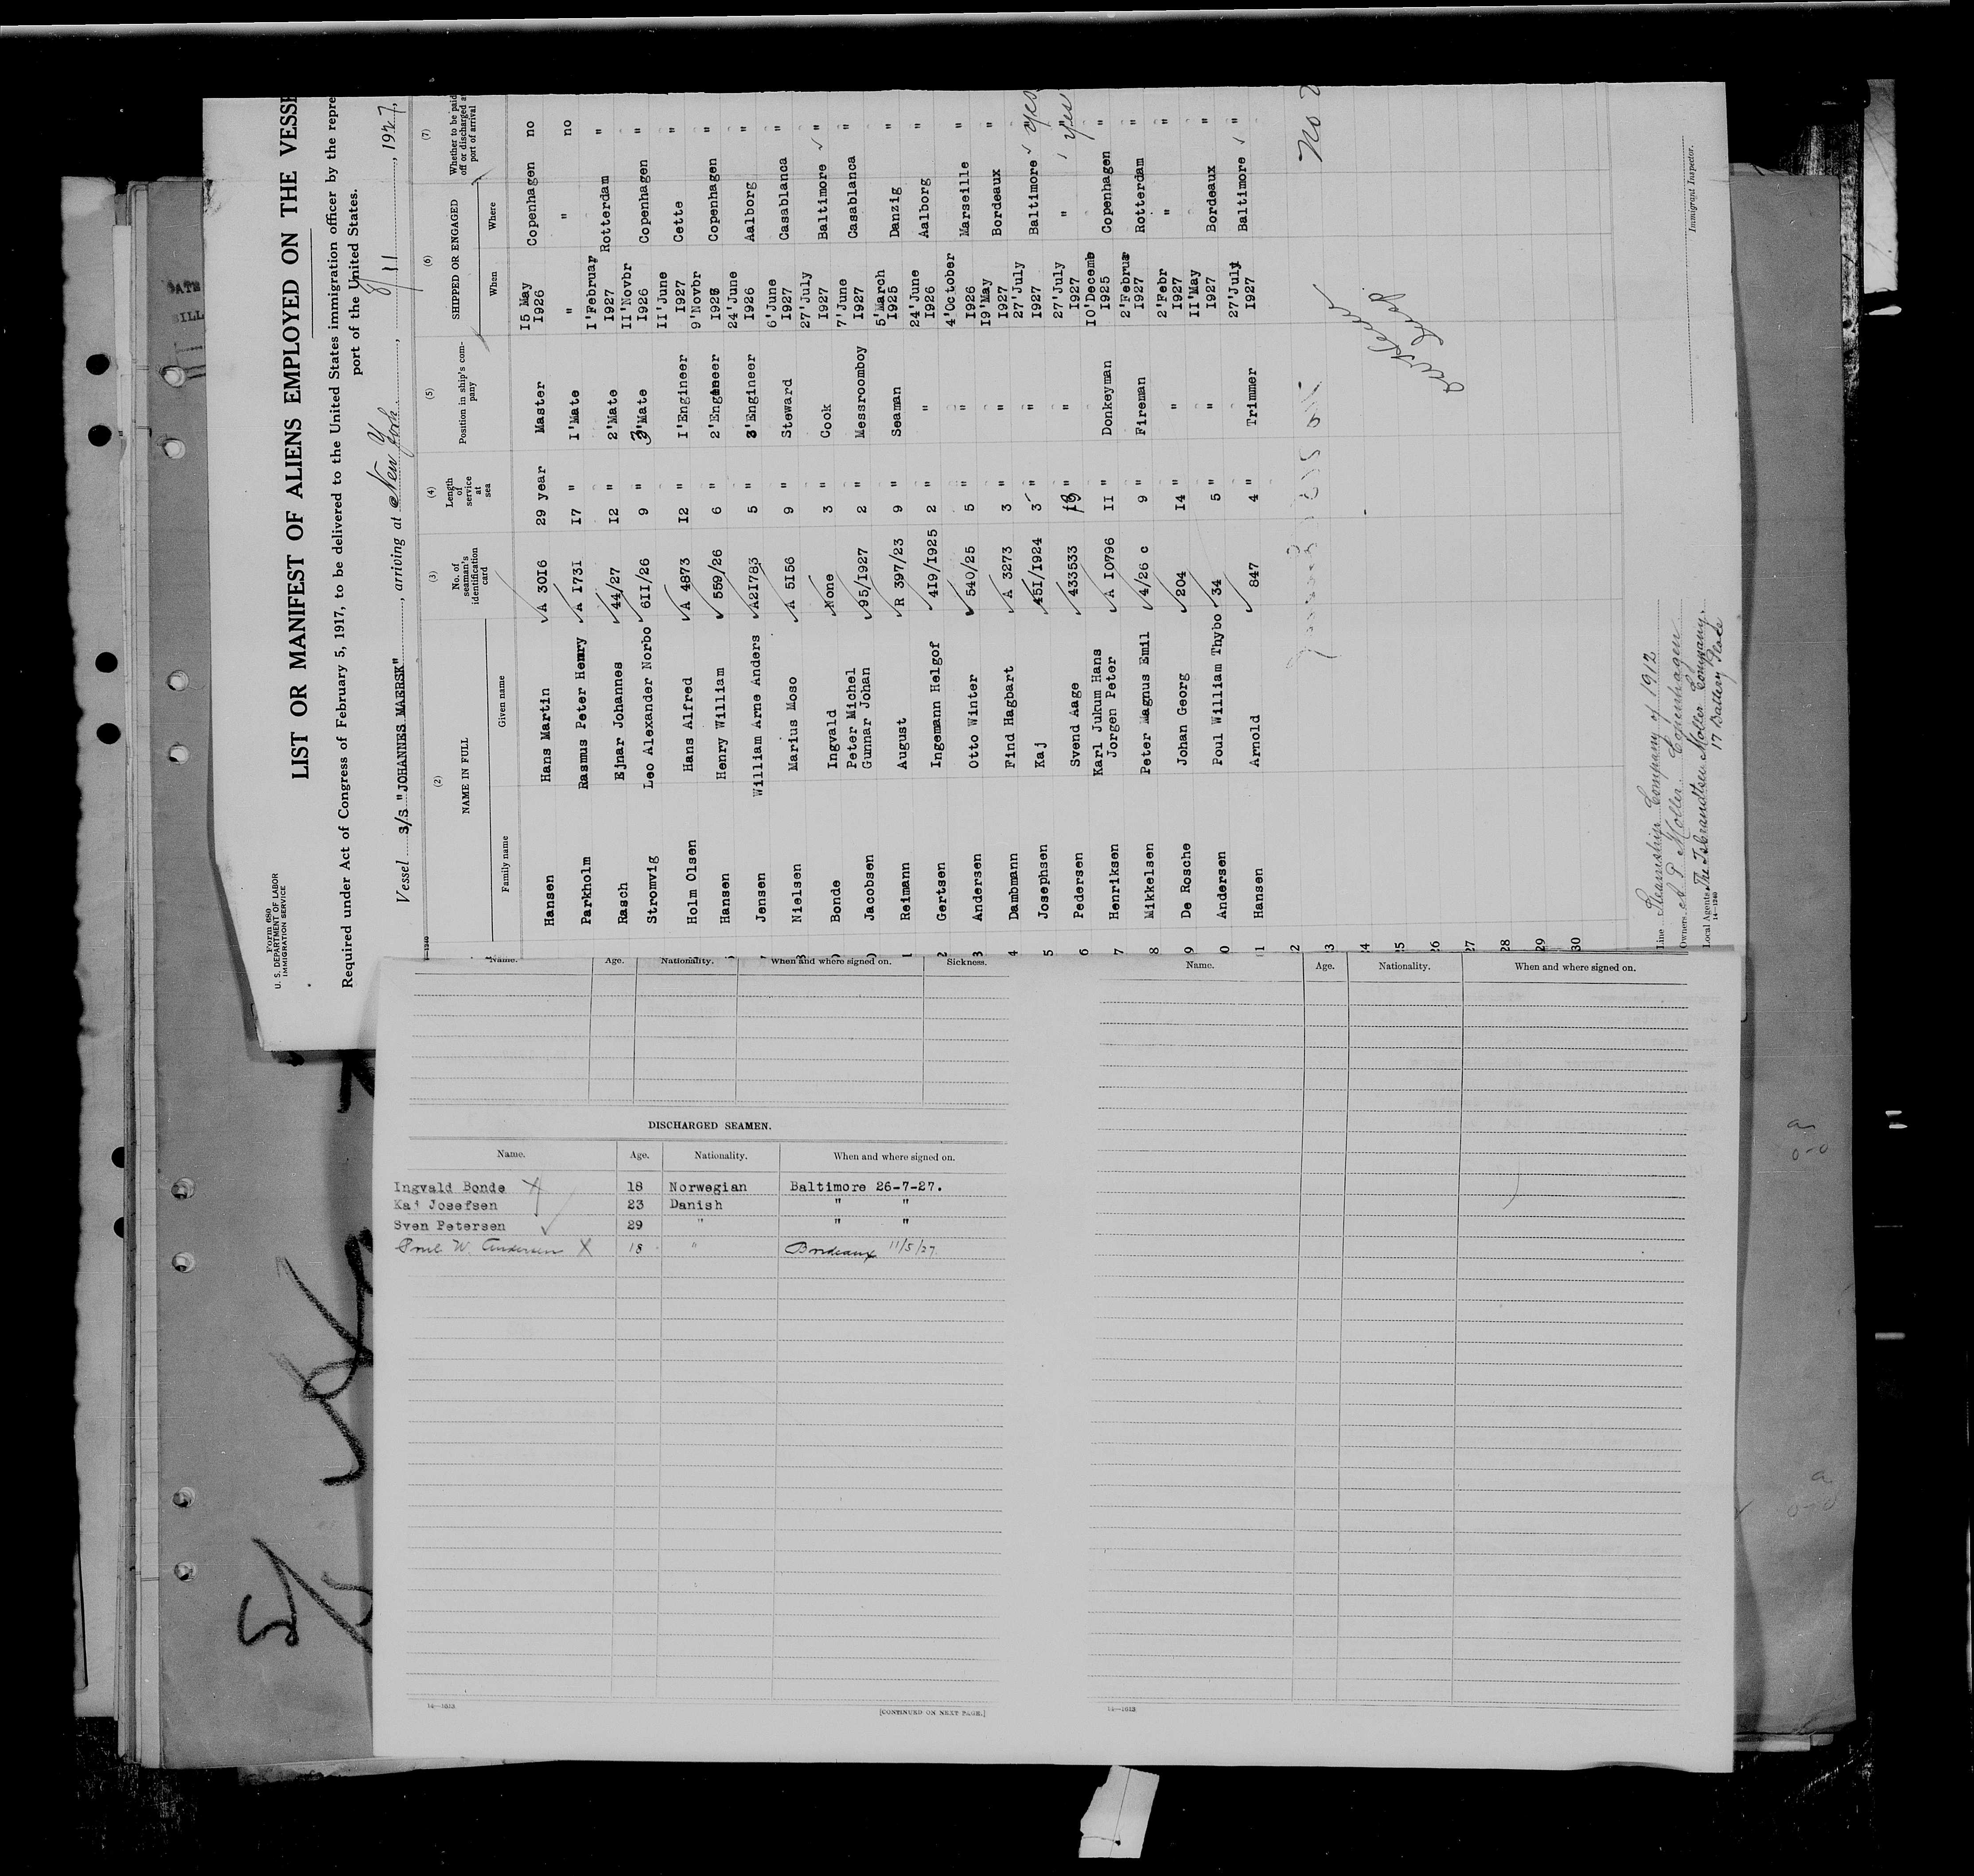 Form 680
U. S. DEPARTMENT OF LABOR
IMMIGRATION SERVICE
LIST OR MANIFEST OF ALIENS EMPLOYED ON THE VESSE
Required under Act of Congress of February 5, 1917, to be delivered to the United States immigration officer by the repre
port of the United States.
Vessel S/S "JOHANNES MAERSK", arriving at New York, 8/11, 1927,
(2) (3) (4) (5) (6) (7)
NAME IN FULL No. of seaman's identification card Length of service at sea Position in ship's company SHIPPED OR ENGAGED Whether to be paid off or discharged a port of arrival
Family name Given name When Where
Hansen Hans Martin A 3016 29 year Master 15 May 1926 Copenhagen no
Parkholm Rasmus Peter Henry A 1731 17 " 1'Mate " " no
Rasch Ejnar Johannes 44/27 12 " 2'Mate 1'Februar 1927 Rotterdam "
Stromvig Leo Alexander Norbo 611/26 9 " 3'Mate 11'Novbr 1926 Copenhagen "
Holm Olsen Hans Alfred A 4873 12 " 1'Engineer 11'June 1927 Cette "
Hansen Henry William 559/26 6 " 2'Engeneer 9'Novbr 1926 Copenhagen "
Jensen William Arne Anders A21783 5 " 3'Engineer 24'June 1926 Aalborg "
Nielsen Marius Moso A 5156 9 " Steward 6'June 1927 Casablanca "
Bonde Ingvald None 3 " Cook 27'July 1927 Baltimore "
Jacobsen Peter Michel Gunnar Johan 95/1927 2 " Messroomboy 7'June 1927 Casablanca "
Reimann August R 397/23 9 " Seaman 5'March 1925 Danzig "
Gertsen Ingemann Helgof 419/1925 2 " " 24'June 1926 Aalborg "
Andersen Otto Winter 540/25 5 " " 4'October 1926 Marseille "
Dambmann Find Hagbart A 3273 3 " " 19'May 1927 Bordeaux "
Josephsen Kaj 451/1924 3 " " 27'July 1927 Baltimore " yes
Pedersen Svend Aage 433533 " " 27'July 1927 " " yes
Henriksen Karl Jukum Hans Jorgen Peter A 10796 11 " Donkeyman 10'Decemb 1925 Copenhagen "
Mikkelsen Peter Magnus Emil 4/26 c 9 " Fireman 2'Februar 1927 Rotterdam "
De Rosche Johan Georg 204 14 " " 2'Febr 1927 " "
Andersen Poul William Thybo 34 5 " " 11'May 1927 Bordeaux "
Hansen Arnold 847 4 " Trimmer 27'July 1927 Baltimore "
No
24
25
26
27
28
29
30
Line Steamship Company of 1912
Owners A. P. Moller Copenhagen
Local Agents The Isbrandtsen Moller Company,
17 Battery Place
14—1240
Immigrant Inspector.
Name. Age. Nationality. When and where signed on. Sickness.
DISCHARGED SEAMEN.
Name. Age. Nationality. When and where signed on.
Ingvald Bonde X 18 Norwegian Baltimore 26-7-27.
Kaj Josefsen 23 Danish " "
Sven Petersen 29 " " "
Poul W. Andersen X 18 " Bordeaux 11/5/27
14—1613
[CONTINUED ON NEXT PAGE.]
Name. Age. Nationality. When and where signed on.
14—1613